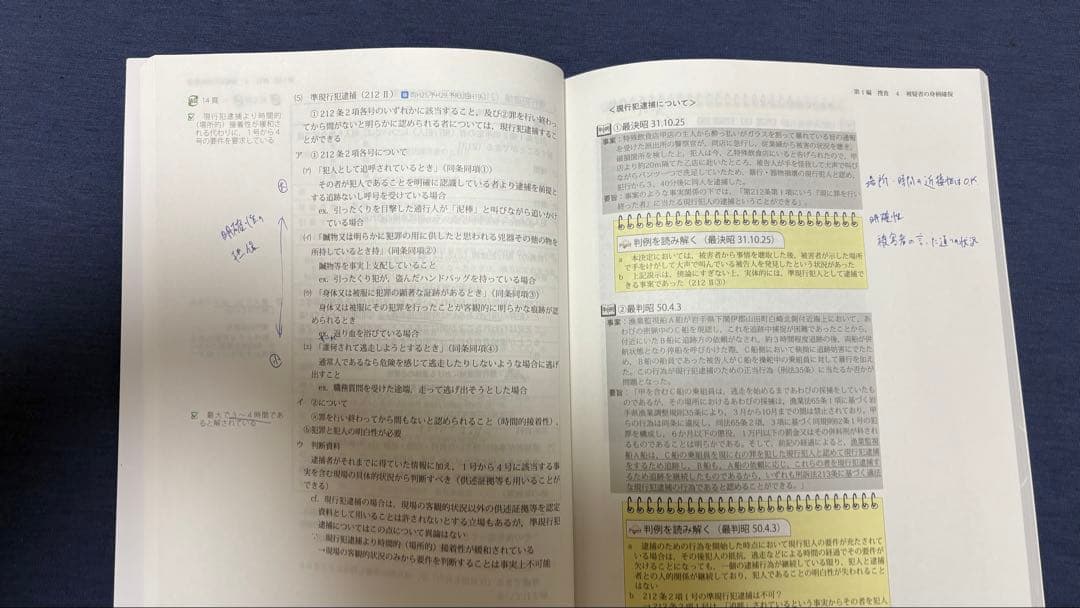 14頁
現行犯逮捕より時間的
(場所的)接着性が緩和さ
れる代わりに、1号から4
号の要件を要求している
最大で3～4時間であ
ると解されている
(5) 準現行犯逮捕(212Ⅱ)
①212条2項各号のいずれかに該当すること、及び②罪を行い終わっ
てから間がないと明らかに認められる者については、現行犯逮捕するこ
とができる
ア ①212条2項各号について
(ア)「犯人として追呼されているとき」(同条同項①)
その者が犯人であることを明確に認識している者より逮捕を前提と
する追跡ないし呼号を受けている場合
ex. 引ったくりを目撃した通行人が「泥棒」と叫びながら追いかけ
ている場合
(イ)「贓物又は明らかに犯罪の用に供したと思われる兇器その他の物を
所持しているとき」(同条同項②)
贓物等を事実上支配していること
ex. 引ったくり犯が、盗んだハンドバッグを持っている場合
(ウ)「身体又は被服に犯罪の顕著な証跡があるとき」(同条同項③)
身体又は被服にその犯罪を行ったことが客観的に明らかな痕跡が認
められるとき
ex. 返り血を浴びている場合
(エ)「誰何されて逃走しようとするとき」(同条同項④)
通常人であるなら危険を感じて逃走したりしないような場合に逃げ
出すこと
ex. 職務質問を受けた途端、走って逃げ出そうとした場合
イ ②について
ⓐ罪を行い終わってから間もないと認められること(時間的接着性)、
ⓑ犯罪と犯人の明白性が必要
ウ 判断資料
逮捕者がそれまでに得ていた情報に加え、1号から4号に該当する事
実を含む現場の具体的状況から判断すべき(供述証拠等も用いることが
できる)
cf. 現行犯逮捕の場合は、現場の客観的状況以外の供述証拠等を認定
資料として用いることは許されないとする立場もあるが、準現行犯
逮捕についてはこの点について異論はない
∵ 現行犯逮捕より時間的(場所的)接着性が緩和されている
→現場の客観的状況のみから要件を判断することは事実上不可能
第1編 捜査 4 被疑者の身柄確保
<現行犯逮捕について>
判例 ①最決昭31.10.25
事案:特殊飲食店甲店の主人から酔っ払いがガラスを割って暴れている旨の通報
を受けた派出所の警察官が、同店に急行し、従業婦から被害の状況を聴き、
破損箇所を検した上、犯人は今、乙特殊飲食店にいると告げられたので、甲
店より約20m隔てた乙店に赴いたところ、被告人が手を怪我して大声で叫び
ながらパンツ一つで洗足していたため、暴行・器物損壊の現行犯人と認め、
犯行から3、40分後に同人を逮捕した。
要旨:事案のような事実関係の下では、「第212条第1項にいう『現に罪を行い
終った者』に当たる現行犯人の逮捕ということができる」。
場所・時間の近接性はOK
明確性
被害者の言った通りの状況
判例を読み解く(最決昭31.10.25)
a 本決定においては、被害者から事情を聴取した後、被害者が示した場所
で手をけがして大声で叫んでいる被告人を発見したという状況があった
b 上記説示は、傍論にすぎない上、実体的には、準現行犯人として逮捕で
きる事案であった(212Ⅱ③)
判例 ②最判昭50.4.3
事案:漁業監視船A船が岩手県下閉伊郡山田町白崎北側付近海上において、あ
わびの密漁中のC船を現認し、これを追跡中捕捉が困難であったことから、
付近にいたB船に追跡方の依頼がなされ、約3時間程度追跡の後、両船が併
航状態となり停船を呼びかけた際、C船側において執拗に追跡妨害にでたた
め、B船の船員であった被告人がC船を操舵中の乗組員に対して暴行を加え
た。この行為が現行犯逮捕のための正当行為(刑法35条)に当たるか否かが
問題となった。
要旨:「甲を含むC船の乗組員は、逃走を始めるまであわびの採捕をしていたも
のであるが、その場所におけるあわびの採捕は、漁業法65条1項に基づく岩
手県漁業調整規則35条により、3月から10月までの間は禁止されており、甲
らの行為は同条に違反し、同法65条2項、3項に基づく同規則62条1号の犯
罪を構成し、6か月以下の懲役、1万円以下の罰金又はその併科刑が科され
るものであることは明らかである。そして、前記の経過によると、漁業監視
船A船は、C船の乗組員を現に右の罪を犯した現行犯人と認めて現行犯逮捕
をするため追跡し、B船も、A船の依頼に応じ、これらの者を現行犯逮捕す
るため追跡を継続したものであるから、いずれも刑訴法213条に基づく適法
な現行犯逮捕の行為であると認めることができる。」
判例を読み解く(最判昭50.4.3)
a 逮捕のための行為を開始した時点において現行犯人の要件が充たされて
いる場合は、その後犯人の抵抗、逃走などによる時間の経過でその要件が
欠けることになっても、一個の逮捕行為が継続している限り、犯人と逮捕
者との人的関係が継続しており、犯人であることの明白性が失われること
はない
b 212条2項1号の準現行犯逮捕は不可?
→212条2項1号は、「追呼」されているという事実からその者を犯人